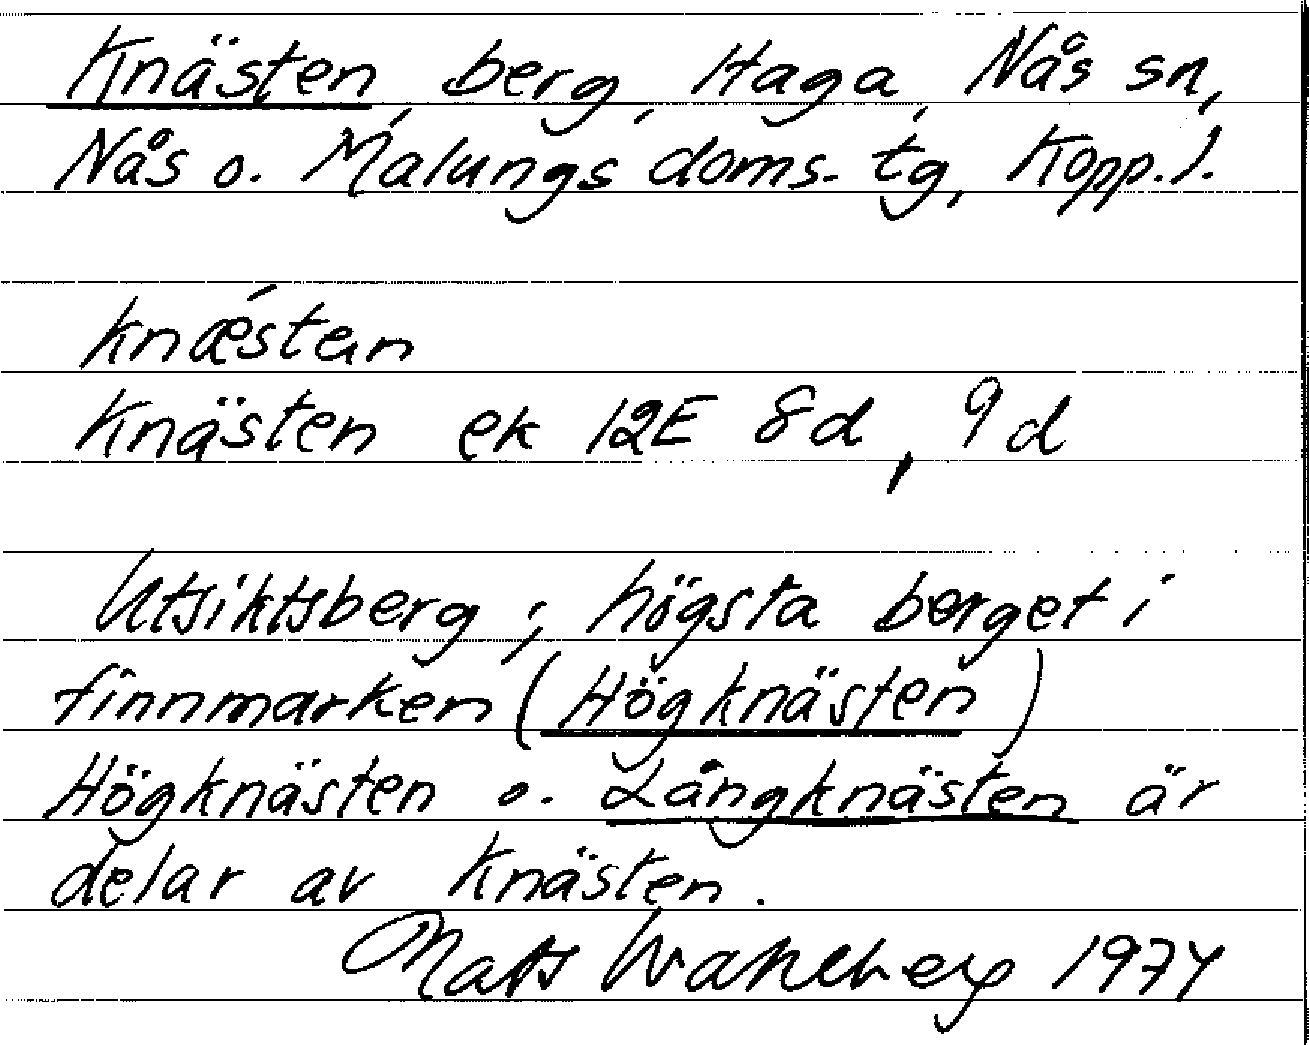 Knästen, berg, Haga, Nås sn,
Nås o. Malungs doms. tg, Kopp. l.
knǽsten
Knästen ek 12E 8d, 9d
Utsiktsberg; högsta berget i
finnmarken (Högknästen)
Högknästen o. Långknästen är
delar av Knästen.
Mats Wahlberg 1974